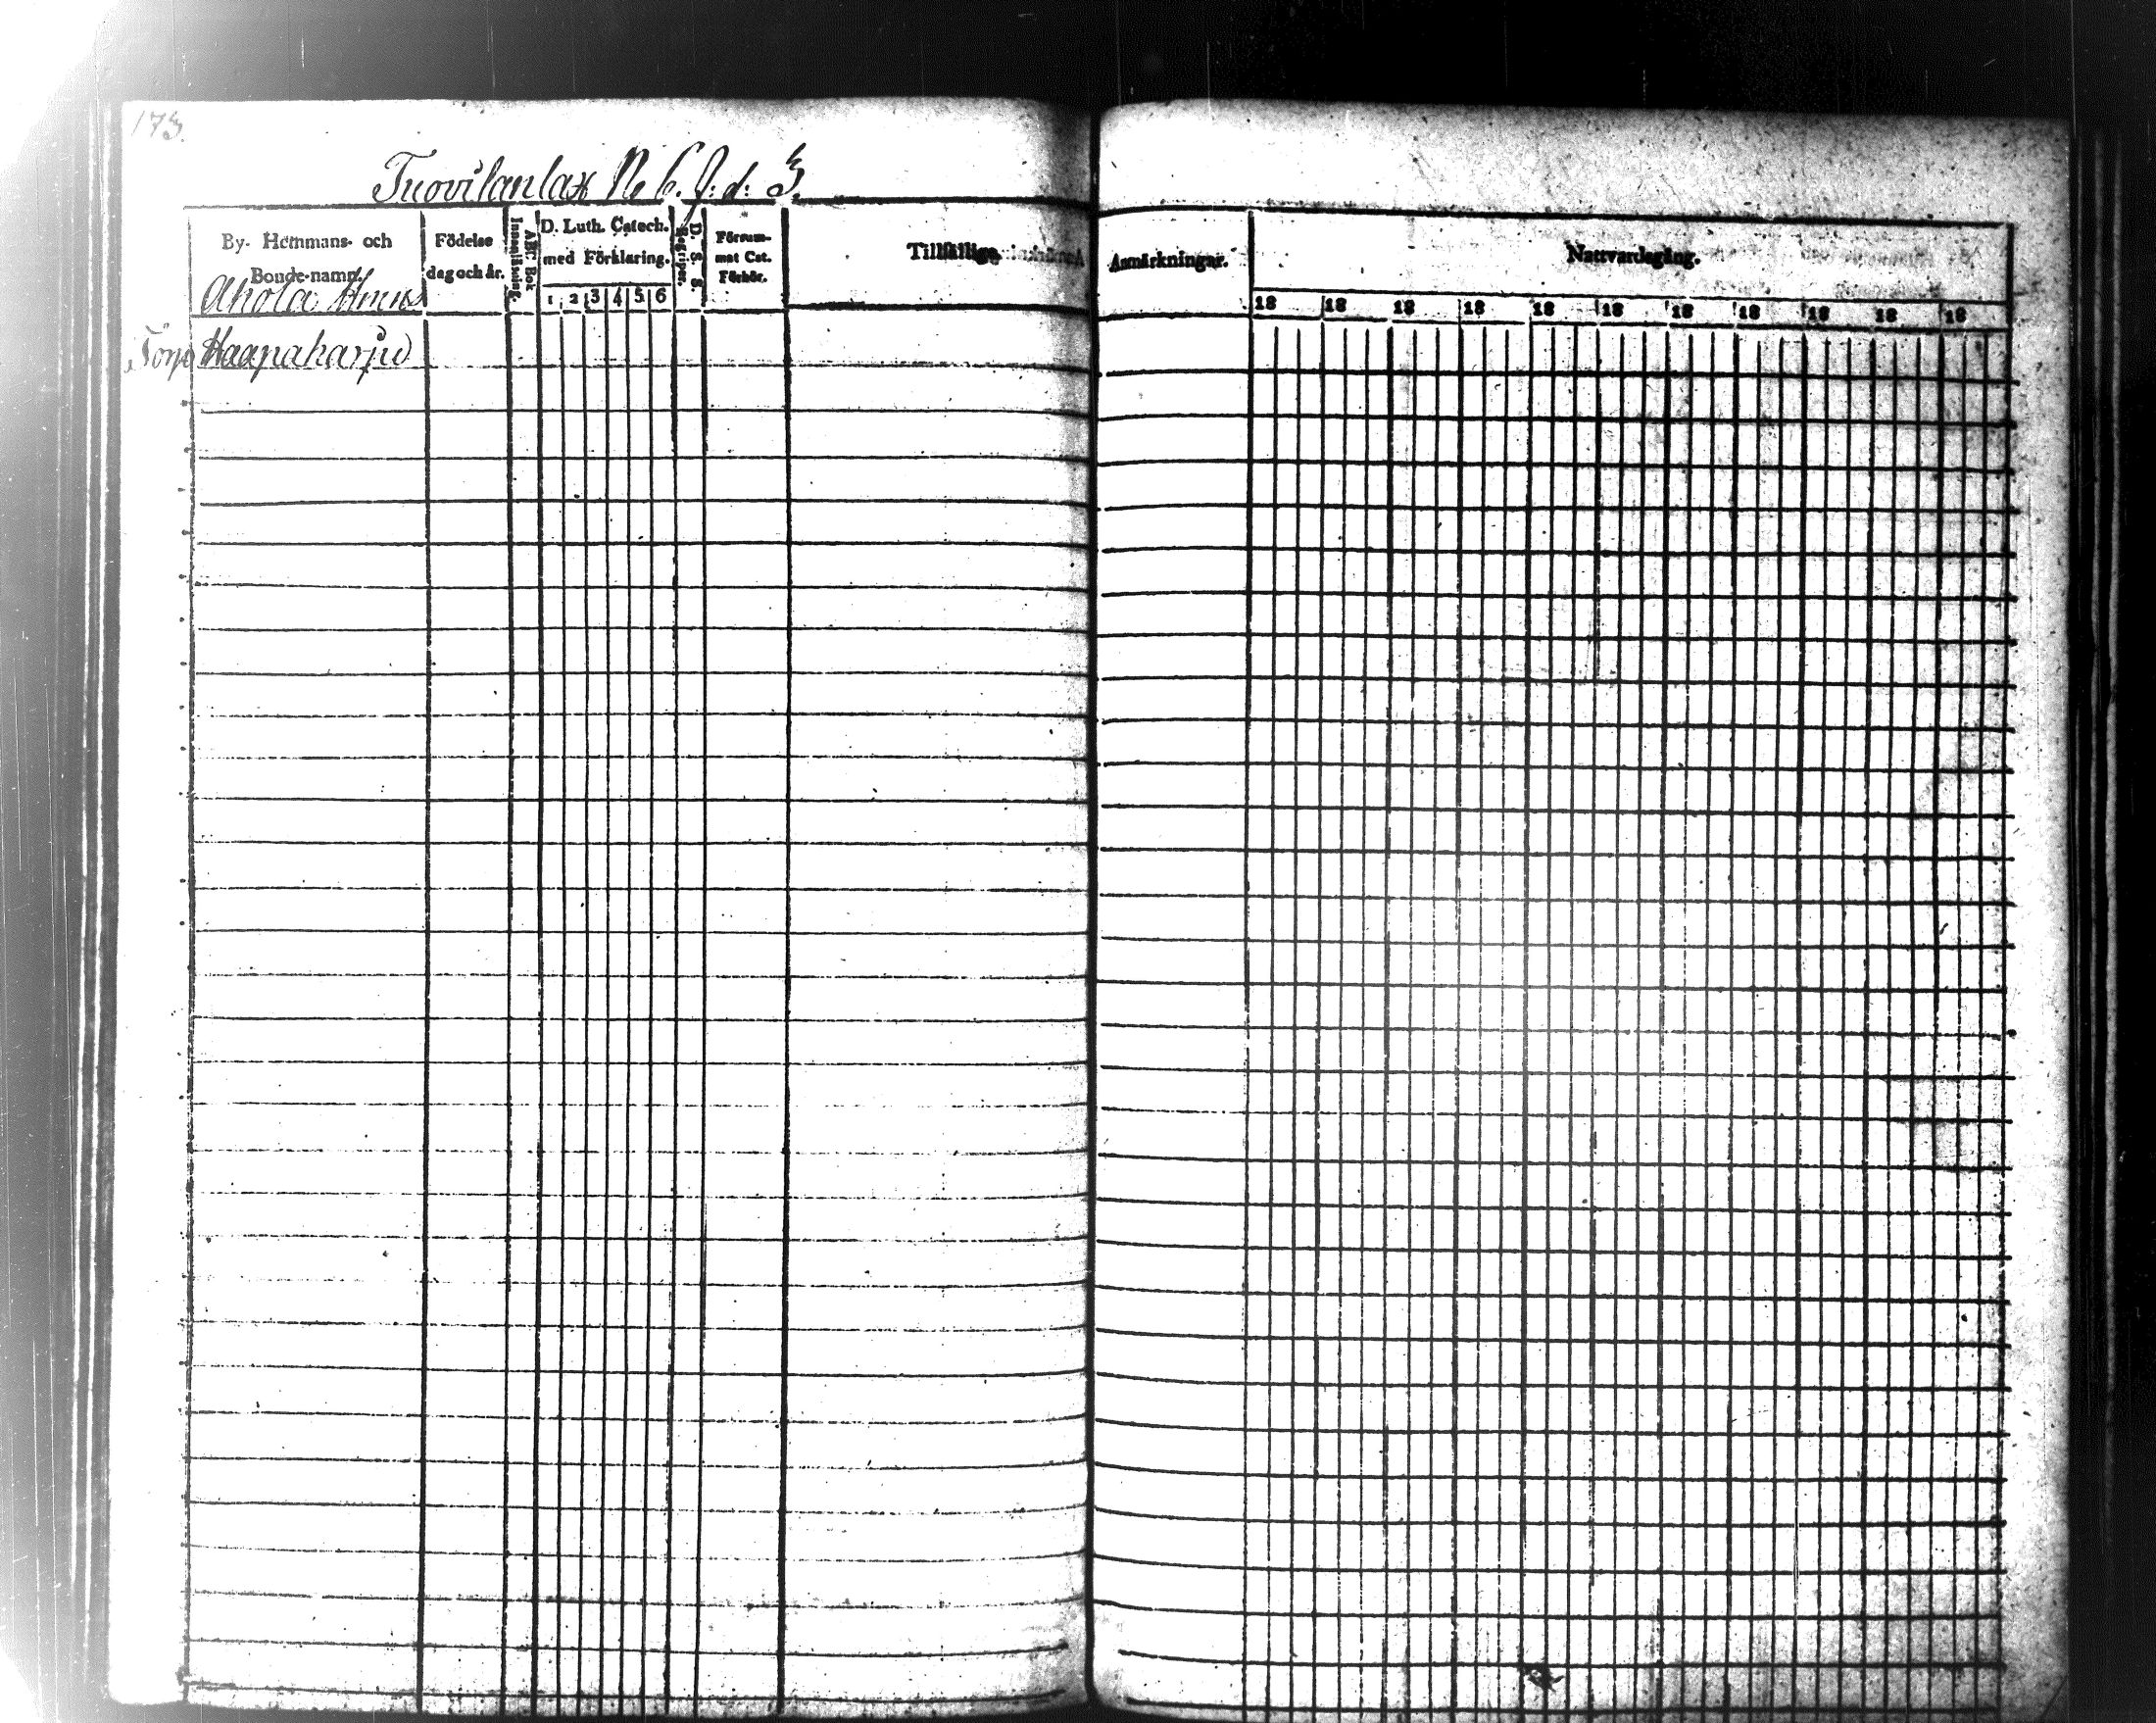 173.
Tuovilanlax No 6. J: d: 3.
By- Hemmans- och
Bonde-namn
Födelse
dag och år.
Innanläsning.
ABC Bok
D. Luth. Catech.
med Förklaring.
1 2 3 4 5 6
Begriper.
D. S. S.
Försum-
mat Cat.
Förhör.
Tillfällige
Anmärkningar.
Nattvardsgång.
18 18 18 18 18 18 18 18 18 18 18
Ahola
Torp Haapaharju